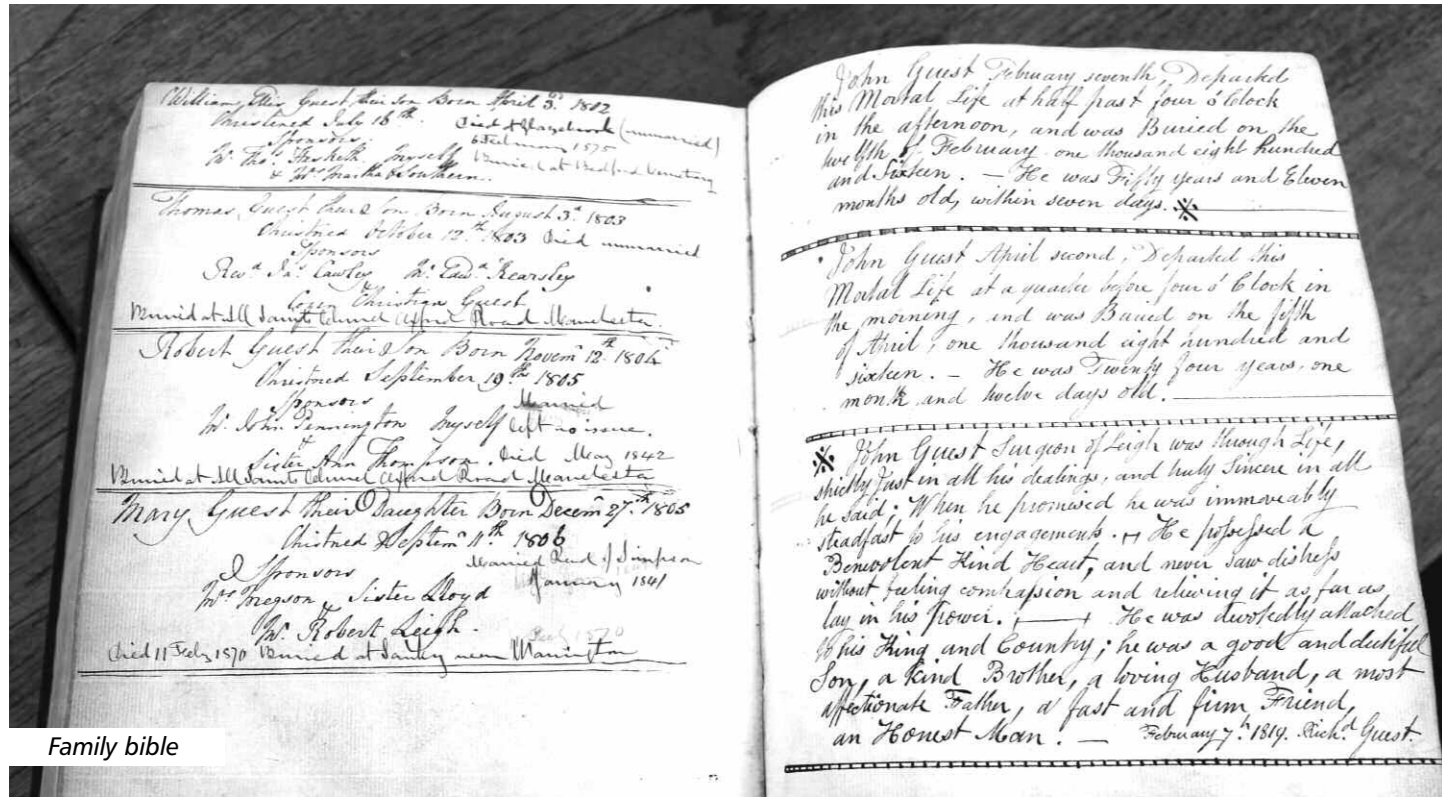 William Ellis Guest their son Born April 3.d 1802
Christened July 16th. Died at Glazebrook (unmarried)
Sponsors 6 February 1875
Mr. Thos. Hesketh, Myself Buried at Bedford Cemetery
& Mrs. Martha Southern.
Thomas, Guest their Son Born August 3.d 1803
Christned October 12.th 1803 Died unmarried
Sponsors
Rev.d Jas. Cawley Mr. Edw.d Kearsley
Christian Guest
Buried at All Saints Oxford Road Manchester.
Robert Guest their Son Born Novem.r 12.th 1804
Christned September 19th 1805
Sponsors Married
Mr. John Pennington Myself left no issue.
Sister Ann Thompson. Died May 1842
Buried at All Saints Oxford Road Manchester
Mary Guest their Daughter Born Decem.r 27.th 1805
Christned Septem.r 11th 1806
Sponsors Married Simpson
January 1841
Mrs Megson, Sister Lloyd
Mr. Robert Leigh.
Died 11 Feby 1870 Buried at Sankey near Warrington
John Guest February seventh, Departed
this Mortal Life at half past four o'Clock
in the afternoon, and was Buried on the
twelfth of February one thousand eight hundred
and Sixteen. — He was Fifty years and Eleven
months old, within seven days. ※
John Guest April second, Departed this
Mortal Life at a quarter before four o'Clock in
the morning, and was Buried on the fifth
of April, one thousand eight hundred and
sixteen. — He was Twenty four years, one
month and twelve days old.
※ John Guest Surgeon of Leigh was through Life,
strictly Just in all his dealings, and truly Sincere in all
he said; When he promised he was immoveably
steadfast to his engagements. He possessed a
Benevolent Kind Heart, and never saw distress
without feeling compassion and relieving it as far as
lay in his Power. He was devotedly attached
to his King and Country; he was a good and dutiful
Son, a kind Brother, a loving Husband, a most
affectionate Father, a fast and firm Friend,
an Honest Man. — February 7th. 1819. Rich.d Guest.
Family bible